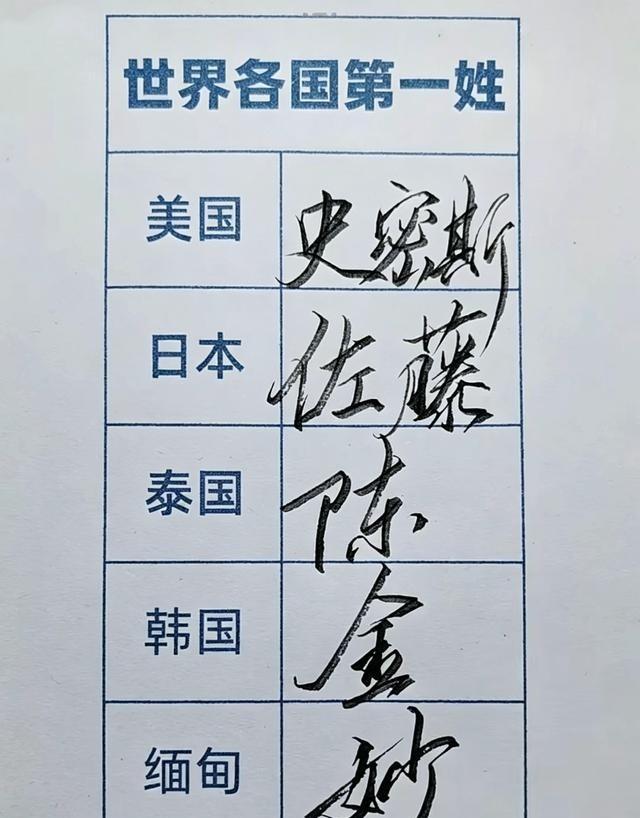 世界各国第一姓
美国 史密斯
日本 佐藤
泰国 陈
韩国 金
缅甸 妙